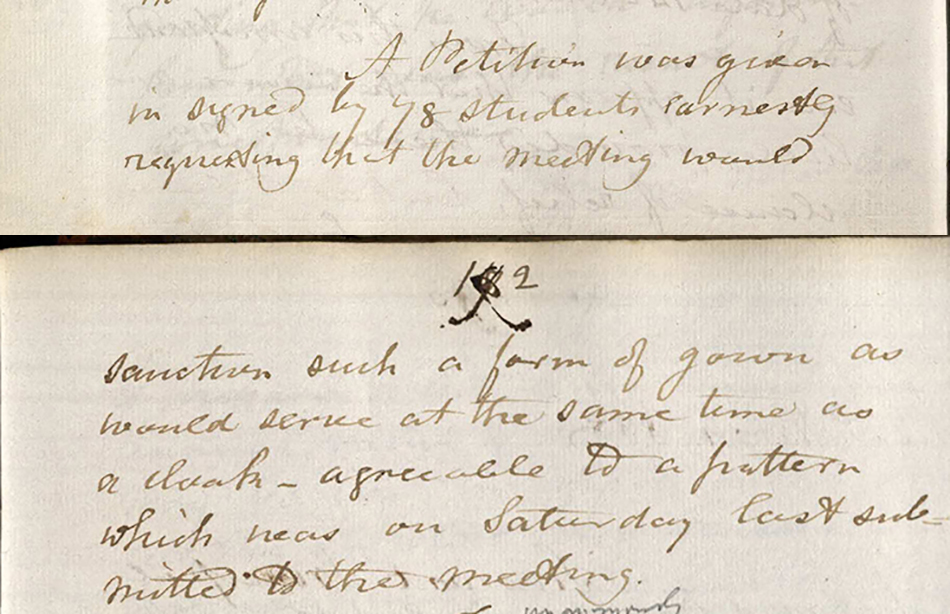 A Petition was given
in signed by 48 students earnestly
requesting that the meeting would
182
sanction such a form of gown as
would serve at the same time as
a cloak - agreeable to a pattern
which was on Saturday last sub=
mitted to the meeting.